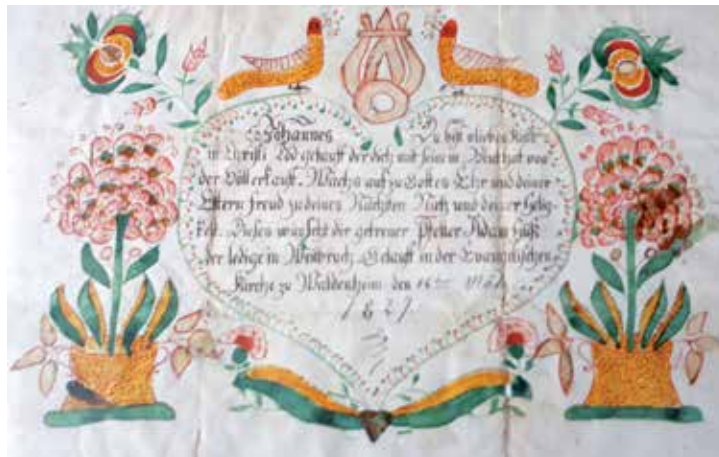 Johannes Du bist o liebes Kind
in Christi Tod getauft der dich mit seinem Blut hat von
der Höll erkauft. Wachs auf zu Gottes Ehr und deiner
Eltern freud zu deines Nächsten Nutz und deiner Selig-
keit. Dieses wünscht dir getreuer Pfetter Adam
der ledige in Getauft in der Evangelischen
Kirche zu Waldenheim den 16ten
1827